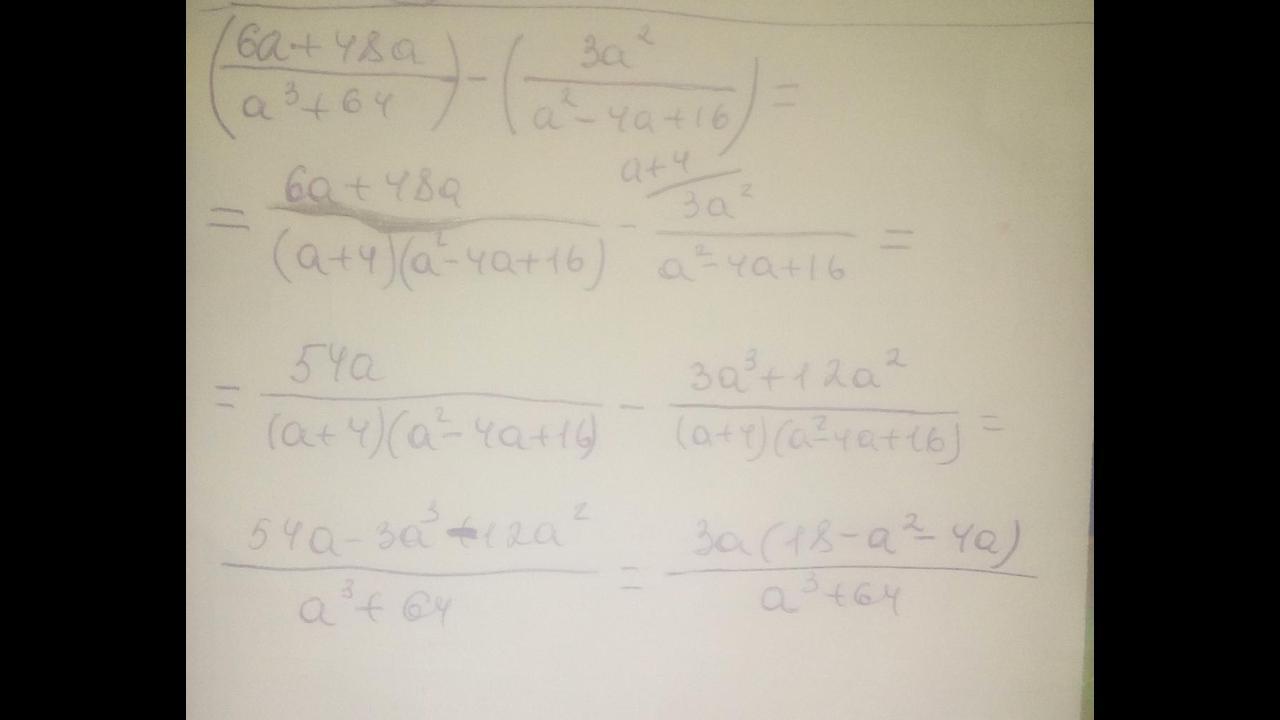 (6a+48a / a³+64) - (3a² / a²-4a+16) =
= 6a+48a / (a+4)(a²-4a+16) - a+4/ 3a² / a²-4a+16 =
= 54a / (a+4)(a²-4a+16) - 3a³+12a² / (a+4)(a²-4a+16) =
54a-3a³-12a² / a³+64 = 3a(18-a²-4a) / a³+64